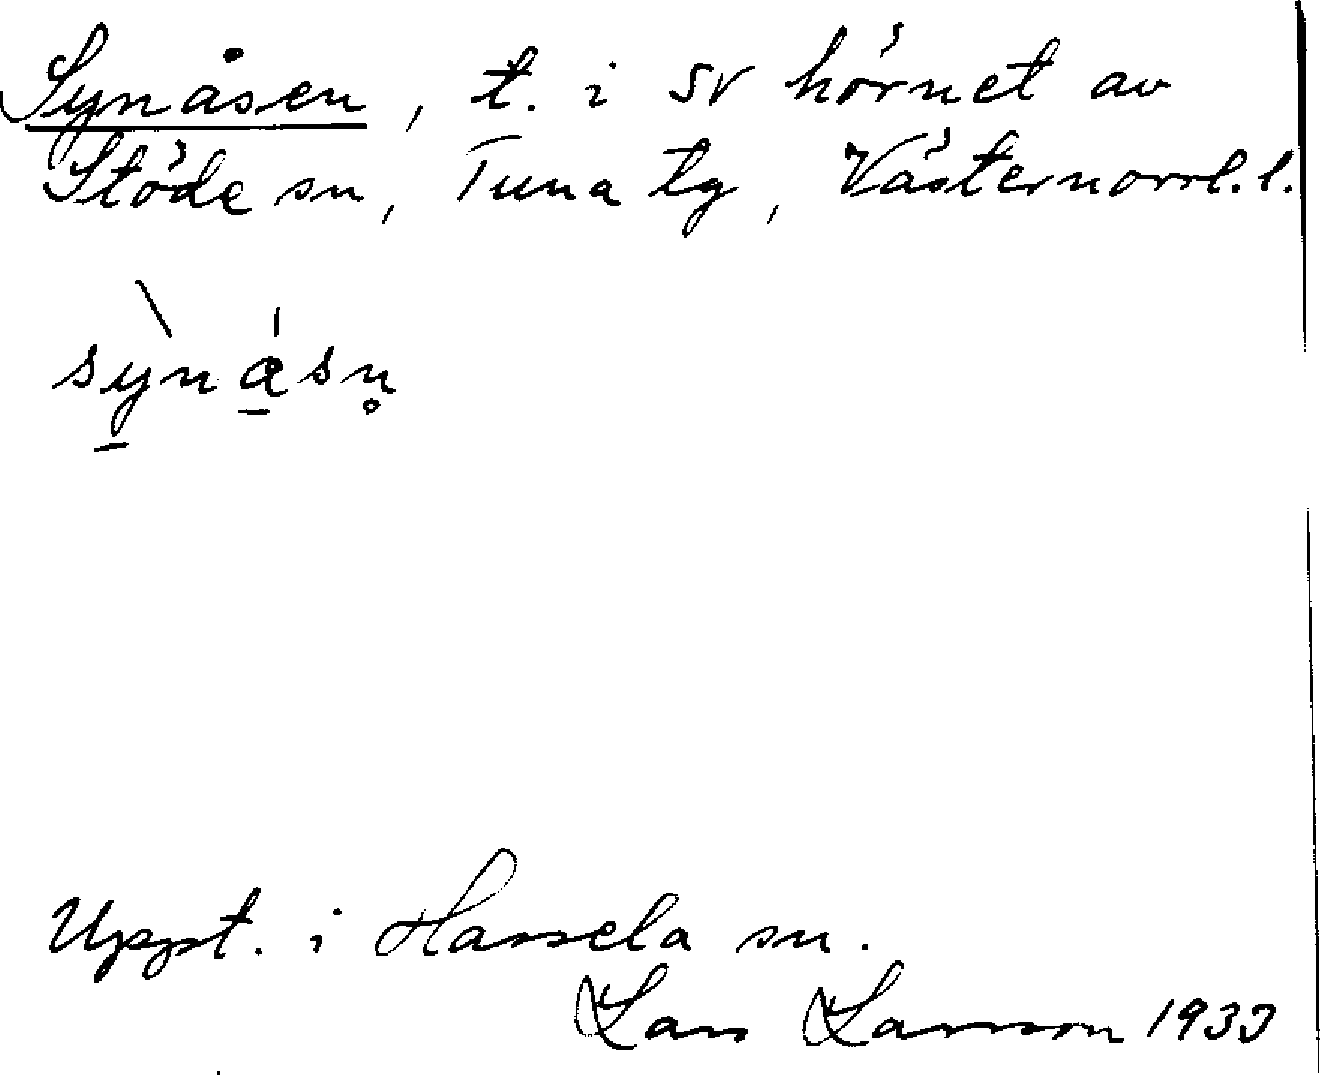 Synåsen, t. i SV hörnet av
Stöde sn, Tuna tg, Västernorrl. l.
sỳ̱ná̱sn̥
Uppt. i Hassela sn.
Lars Larsson 1933